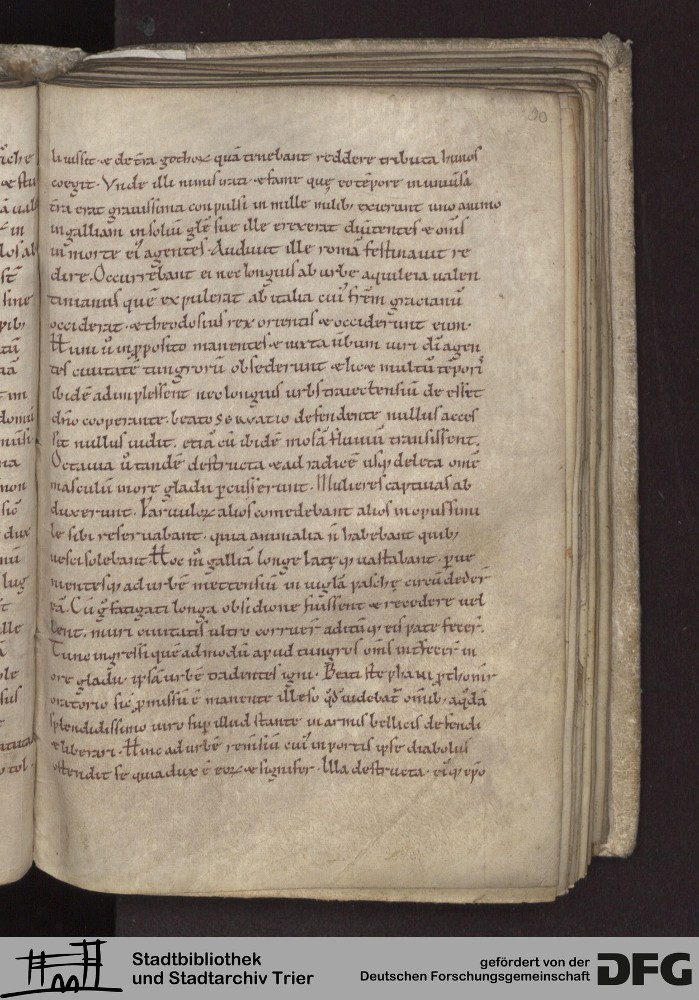 90.
li iussit · & de t̄ra gothoꝝ quā tenebant reddere tributa hunos
coegit · Vnde illi nimis irati · & fame quę eo tēpore in uniūsa
t̄ra erat grauissima conpulsi in mille milib; exierant uno animo
in galliam in soliū glē sue ille erexerat & om̄s
in morte ei' agentes · Audiuit ille roma festinauit re
dire. Occurrebant ei nec longius ab urbe aquileia ualen
tinianus quē expulerat ab italia cui' frēm gracianū
occiderat · & theodosius rex orientis & occiderunt eum ·
Huni ū in p̄posito manentes & iuxta ūbum uiri dī agen
tes ciuitatē tungrorū obsederunt & lic& multū tēpori'
ibidē adimplessent nec longius urbs traiectensiū de esset
dn̄o cooperante · beato seruatio defendente nullus acces
sit nullus uidit · etiā cū ibidē mosā fluuiū transissent.
Octauia ū tandē destructa & ad radicē usq; deleta om̄e
masculū in ore gladii ꝑcusserunt · Mulieres captiuas ab
duxerunt · Paruuloꝝ alios comedebant alios in opus simi
le sibi reseruabant · quia animalia n̄ habebant quib;
uesci solebant Hoc m̊ galliā longe latęq; uastabant · ꝑue
nientesq; ad urbē mettensiū in uigľa paschę circū deder̄
eā. Cū g̊ fatigati longa obsidione fuissent & recedere uel
lent. muri ciuitatis ultro corruer̄ aditūq; eis pate fecer̄.
Tunc ingressi quē ad modū apud tungros om̄s int̄fecer̄ in
ore gladii · ipsā urbē tradentes igni · Beati stephani ꝓthomr̄
oratorio sic ꝓmissū ē manente illeso qđ uidebat' omib; a q̊dā
splendidissimo uiro suꝑ illud stante in armis bellicis defendi
& liberari · Hinc ad urbē remsiū cui' in portis ipse diabolus
ostendit se quia dux ē eoꝝ & signifer · Illa destructa · ei'q; ep̄o
Stadtbibliothek
und Stadtarchiv Trier
gefördert von der
Deutschen Forschungsgemeinschaft
DFG